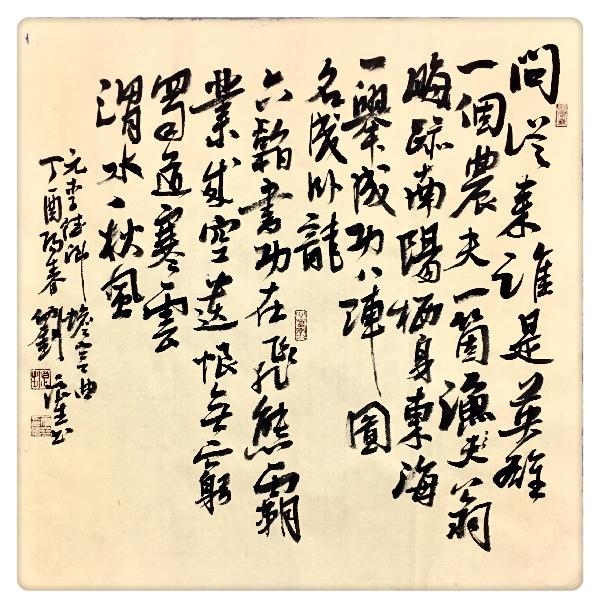 問從來誰是英雄
一個農夫一箇漁夫翁
晦跡南陽栖身東海
一舉成功八陣圖
名成卧龍
六韜書功在飛熊霸
業成空遺恨無窮
蜀道寒雲
渭水秋風
元查德卿蟾宫曲
丁酉陽春劉書